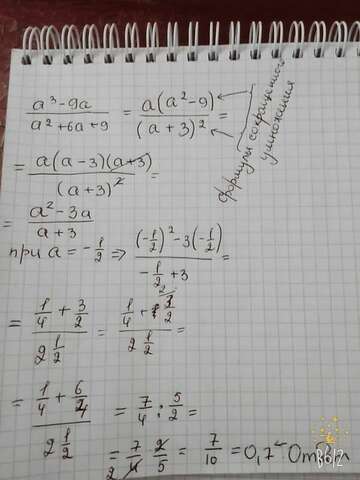 (a³-9a)/(a²+6a+9) = a(a²-9)/(a+3)² =
формулы сокращенного
умножения
= a(a-3)(a+3)/(a+3)² =
= (a²-3a)/(a+3)
при a = -1/2 => ((-1/2)²-3(-1/2))/(-1/2+3) =
= (1/4+3/2)/(2 1/2) = (1/4+3/2)/(2 1/2) =
= (1/4+6/4)/(2 1/2) = 7/4 : 5/2 =
= 7/4 · 2/5 = 7/10 = 0,7 Ответ